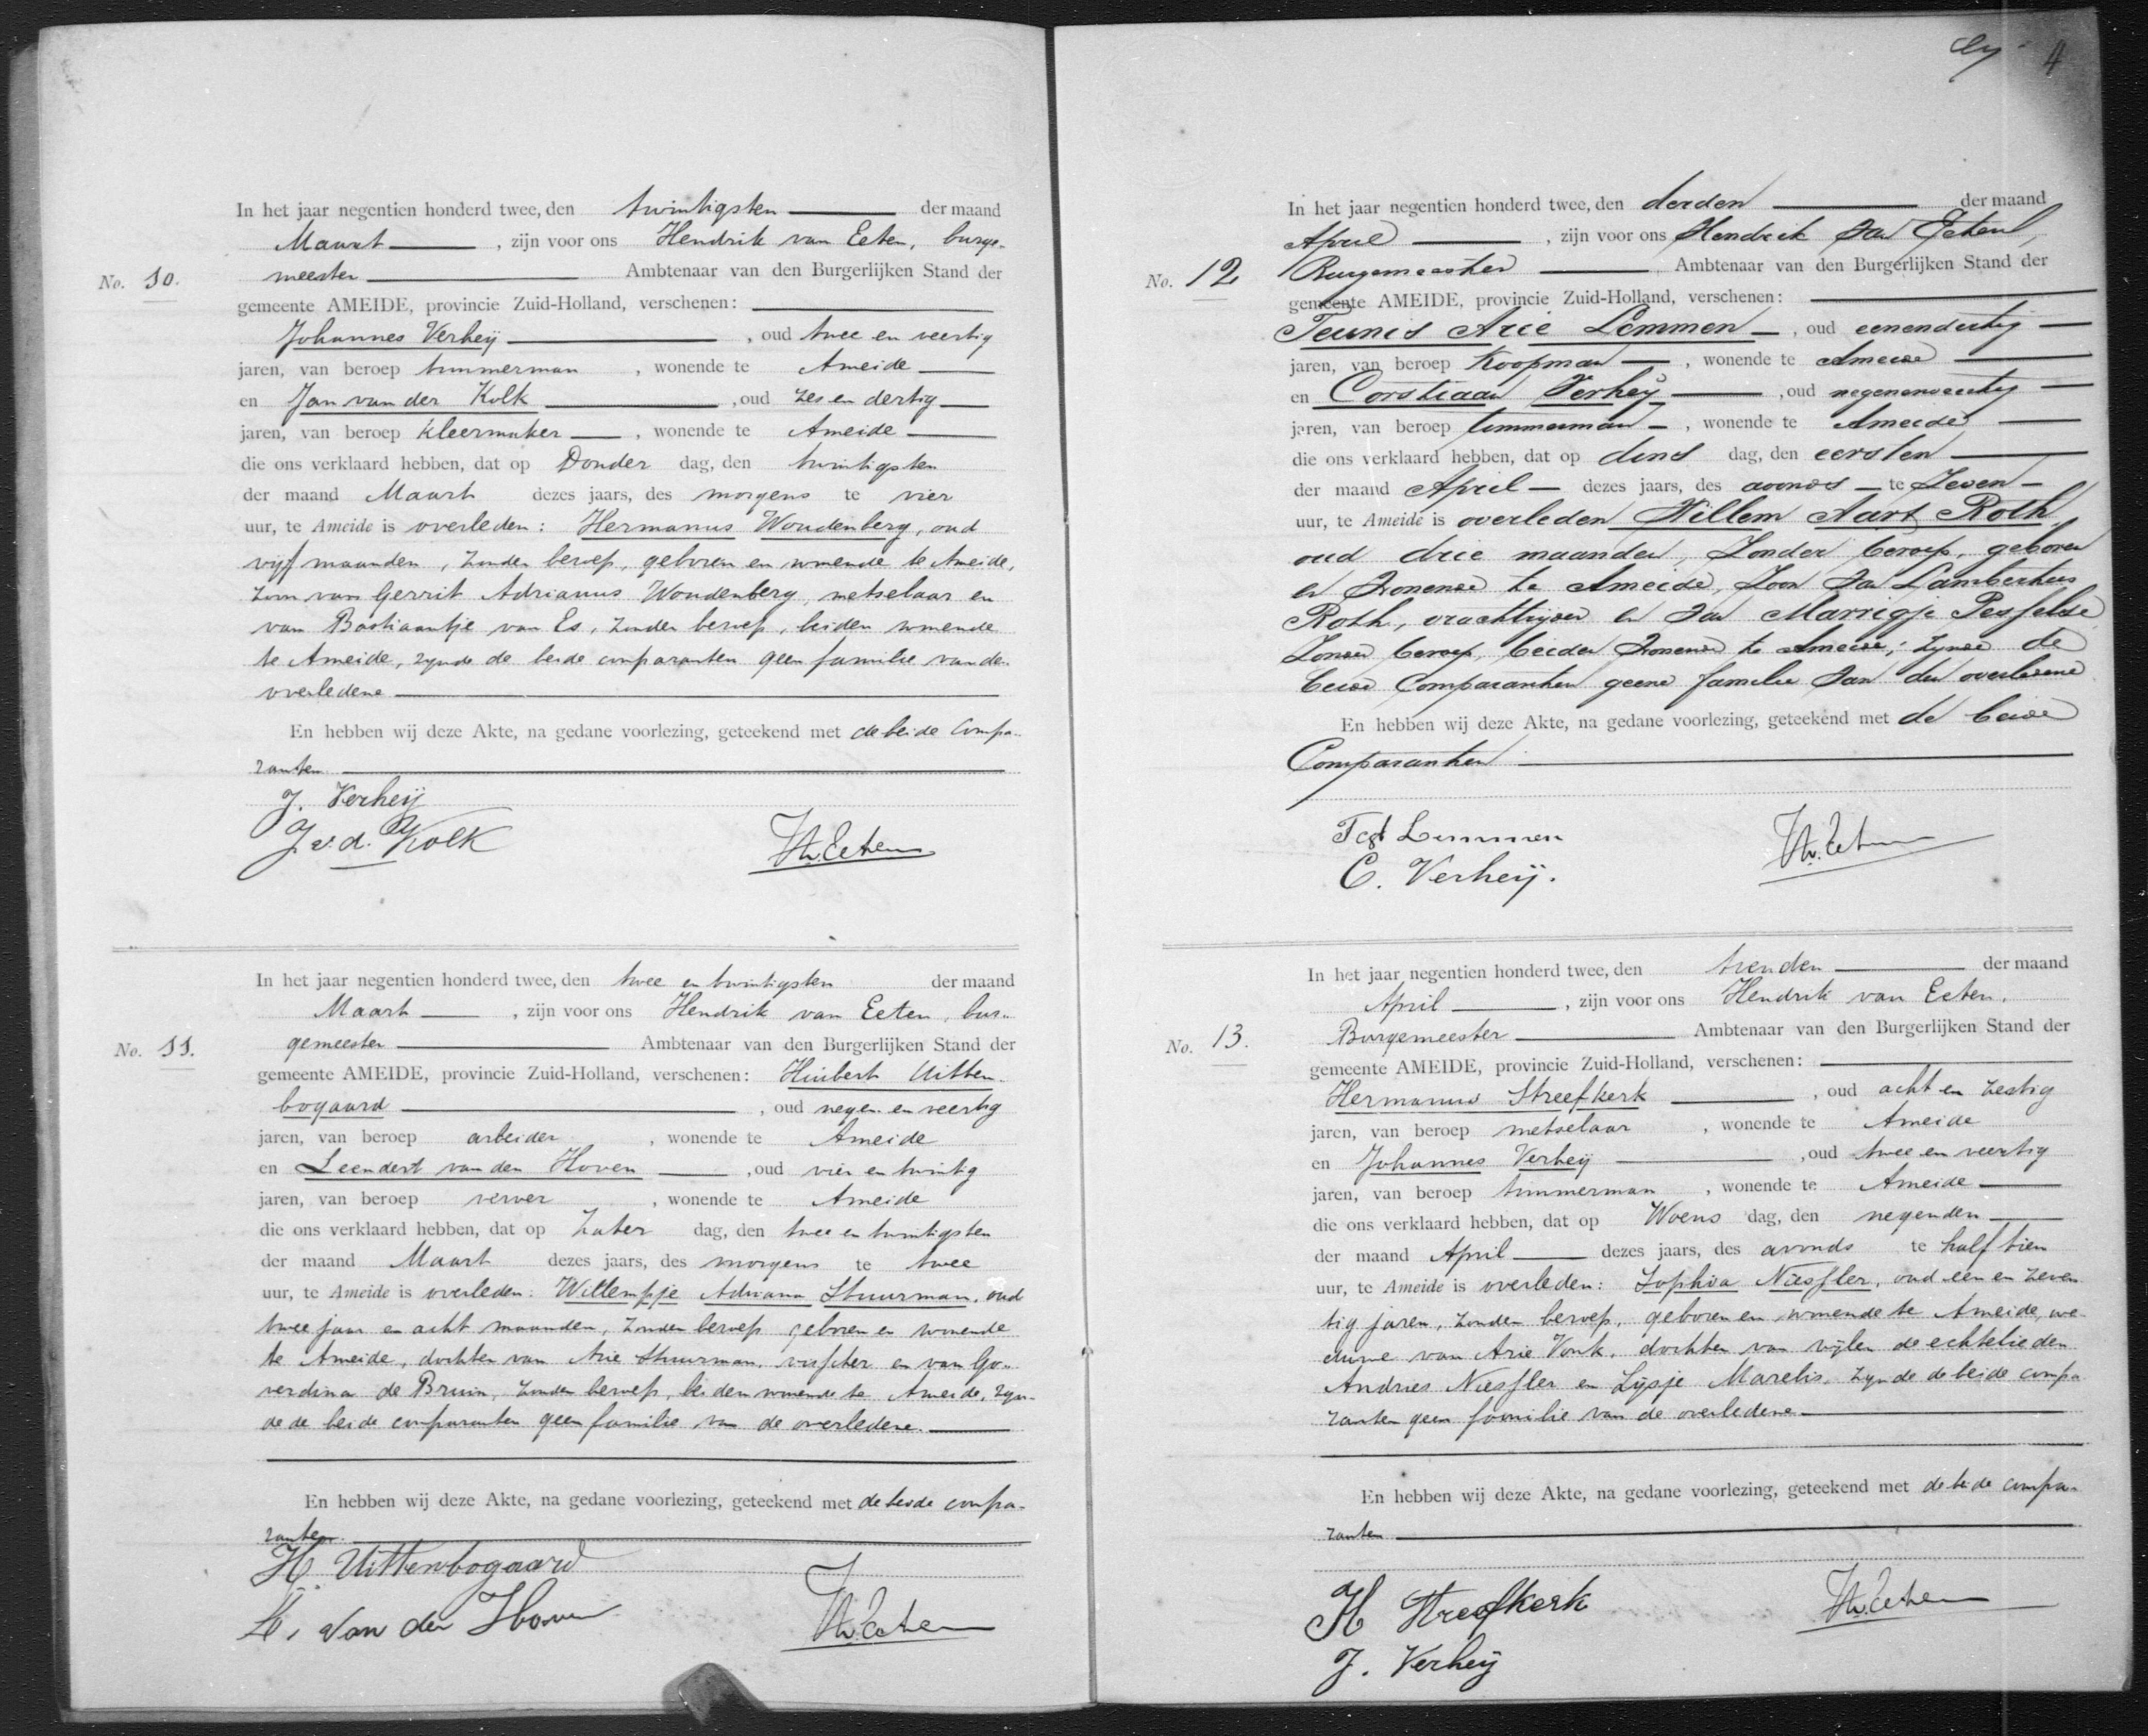 In het jaar negentien honderd twee, den twintigsten der maand
Maart , zijn voor ons Hendrik van Eeten, burge-
No. 10. meester Ambtenaar van den Burgerlijken Stand der
gemeente AMEIDE, provincie Zuid-Holland, verschenen:
Johannes Verheij , oud twee en veertig
jaren, van beroep timmerman , wonende te Ameide
en Jan van der Kolk , oud zes en dertig
jaren, van beroep kleermaker , wonende te Ameide
die ons verklaard hebben, dat op Donder dag, den twintigsten
der maand Maart dezes jaars, des morgens te vier
uur, te Ameide is overleden: Hermanus Woudenberg, oud
vijf maanden, zonder beroep, geboren en wonende te Ameide,
zoon van Gerrit Adrianus Woudenberg, metselaar en
van Bastiaantje van Es, zonder beroep, beiden wonende
te Ameide, zynde de beide comparanten geen familie van de
overledene
En hebben wij deze Akte, na gedane voorlezing, geteekend met de beide compa-
ranten
J. Verheij
J. v. d. Kolk
HvEeten
In het jaar negentien honderd twee, den twee en twintigsten der maand
Maart , zijn voor ons Hendrik van Eeten, bur-
No. 11. gemeester Ambtenaar van den Burgerlijken Stand der
gemeente AMEIDE, provincie Zuid-Holland, verschenen: Huibert Uitten-
bogaard , oud negen en veertig
jaren, van beroep arbeider , wonende te Ameide
en Leendert van den Hoven , oud vier en twintig
jaren, van beroep verver , wonende te Ameide
die ons verklaard hebben, dat op Zater dag, den twee en twintigsten
der maand Maart dezes jaars, des morgens te twee
uur, te Ameide is overleden: Willempje Adriana Stuurman, oud
twee jaar en acht maanden, zonder beroep geboren en wonende
te Ameide, dochter van Arie Stuurman, visscher en van Go-
verdina de Bruin, zonder beroep, beiden wonende te Ameide, zyn-
de de beide comparanten geen familie van de overledene.
En hebben wij deze Akte, na gedane voorlezing, geteekend met de beide compa-
ranten.
H. Uittenbogaard
L. van den Hoven
HvEeten
4
In het jaar negentien honderd twee, den derden der maand
April , zijn voor ons Hendrik van Eeten,
No. 12 Burgemeester Ambtenaar van den Burgerlijken Stand der
gemeente AMEIDE, provincie Zuid-Holland, verschenen:
Teunis Arie Lemmen , oud eenendertig
jaren, van beroep Koopman , wonende te Ameide
en Corstiaan Verheij , oud negenenveertig
jaren, van beroep timmerman , wonende te Ameide
die ons verklaard hebben, dat op dins dag, den eersten
der maand April dezes jaars, des avonds te zeven
uur, te Ameide is overleden Willem Aart Roth
oud drie maanden, zonder beroep, geboren
en wonende te Ameide, zoon van Lambertus
Roth, vrachtrijder en van Marrigje Pesselse
zonder beroep, beiden wonende te Ameide; zijnde de
beide Comparanten geene familie van den overledene
En hebben wij deze Akte, na gedane voorlezing, geteekend met de beide
Comparanten
Lemmen
C. Verheij.
HvEeten
In het jaar negentien honderd twee, den tienden der maand
April , zijn voor ons Hendrik van Eeten,
No. 13. Burgemeester Ambtenaar van den Burgerlijken Stand der
gemeente AMEIDE, provincie Zuid-Holland, verschenen:
Hermanus Streefkerk , oud acht en zestig
jaren, van beroep metselaar , wonende te Ameide
en Johannes Verheij , oud twee en veertig
jaren, van beroep timmerman , wonende te Ameide
die ons verklaard hebben, dat op Woens dag, den negenden
der maand April dezes jaars, des avonds te half tien
uur, te Ameide is overleden: Sophia Niessler, oud een en zeven-
tig jaren, zonder beroep, geboren en wonende te Ameide, we-
duwe van Arie Vonk, dochter van wijlen de echtelieden
Andries Niessler en Lijsje Marelis, zynde de beide compa-
ranten geen familie van de overledene
En hebben wij deze Akte, na gedane voorlezing, geteekend met de beide compa-
ranten
H Streefkerk
J. Verheij
HvEeten